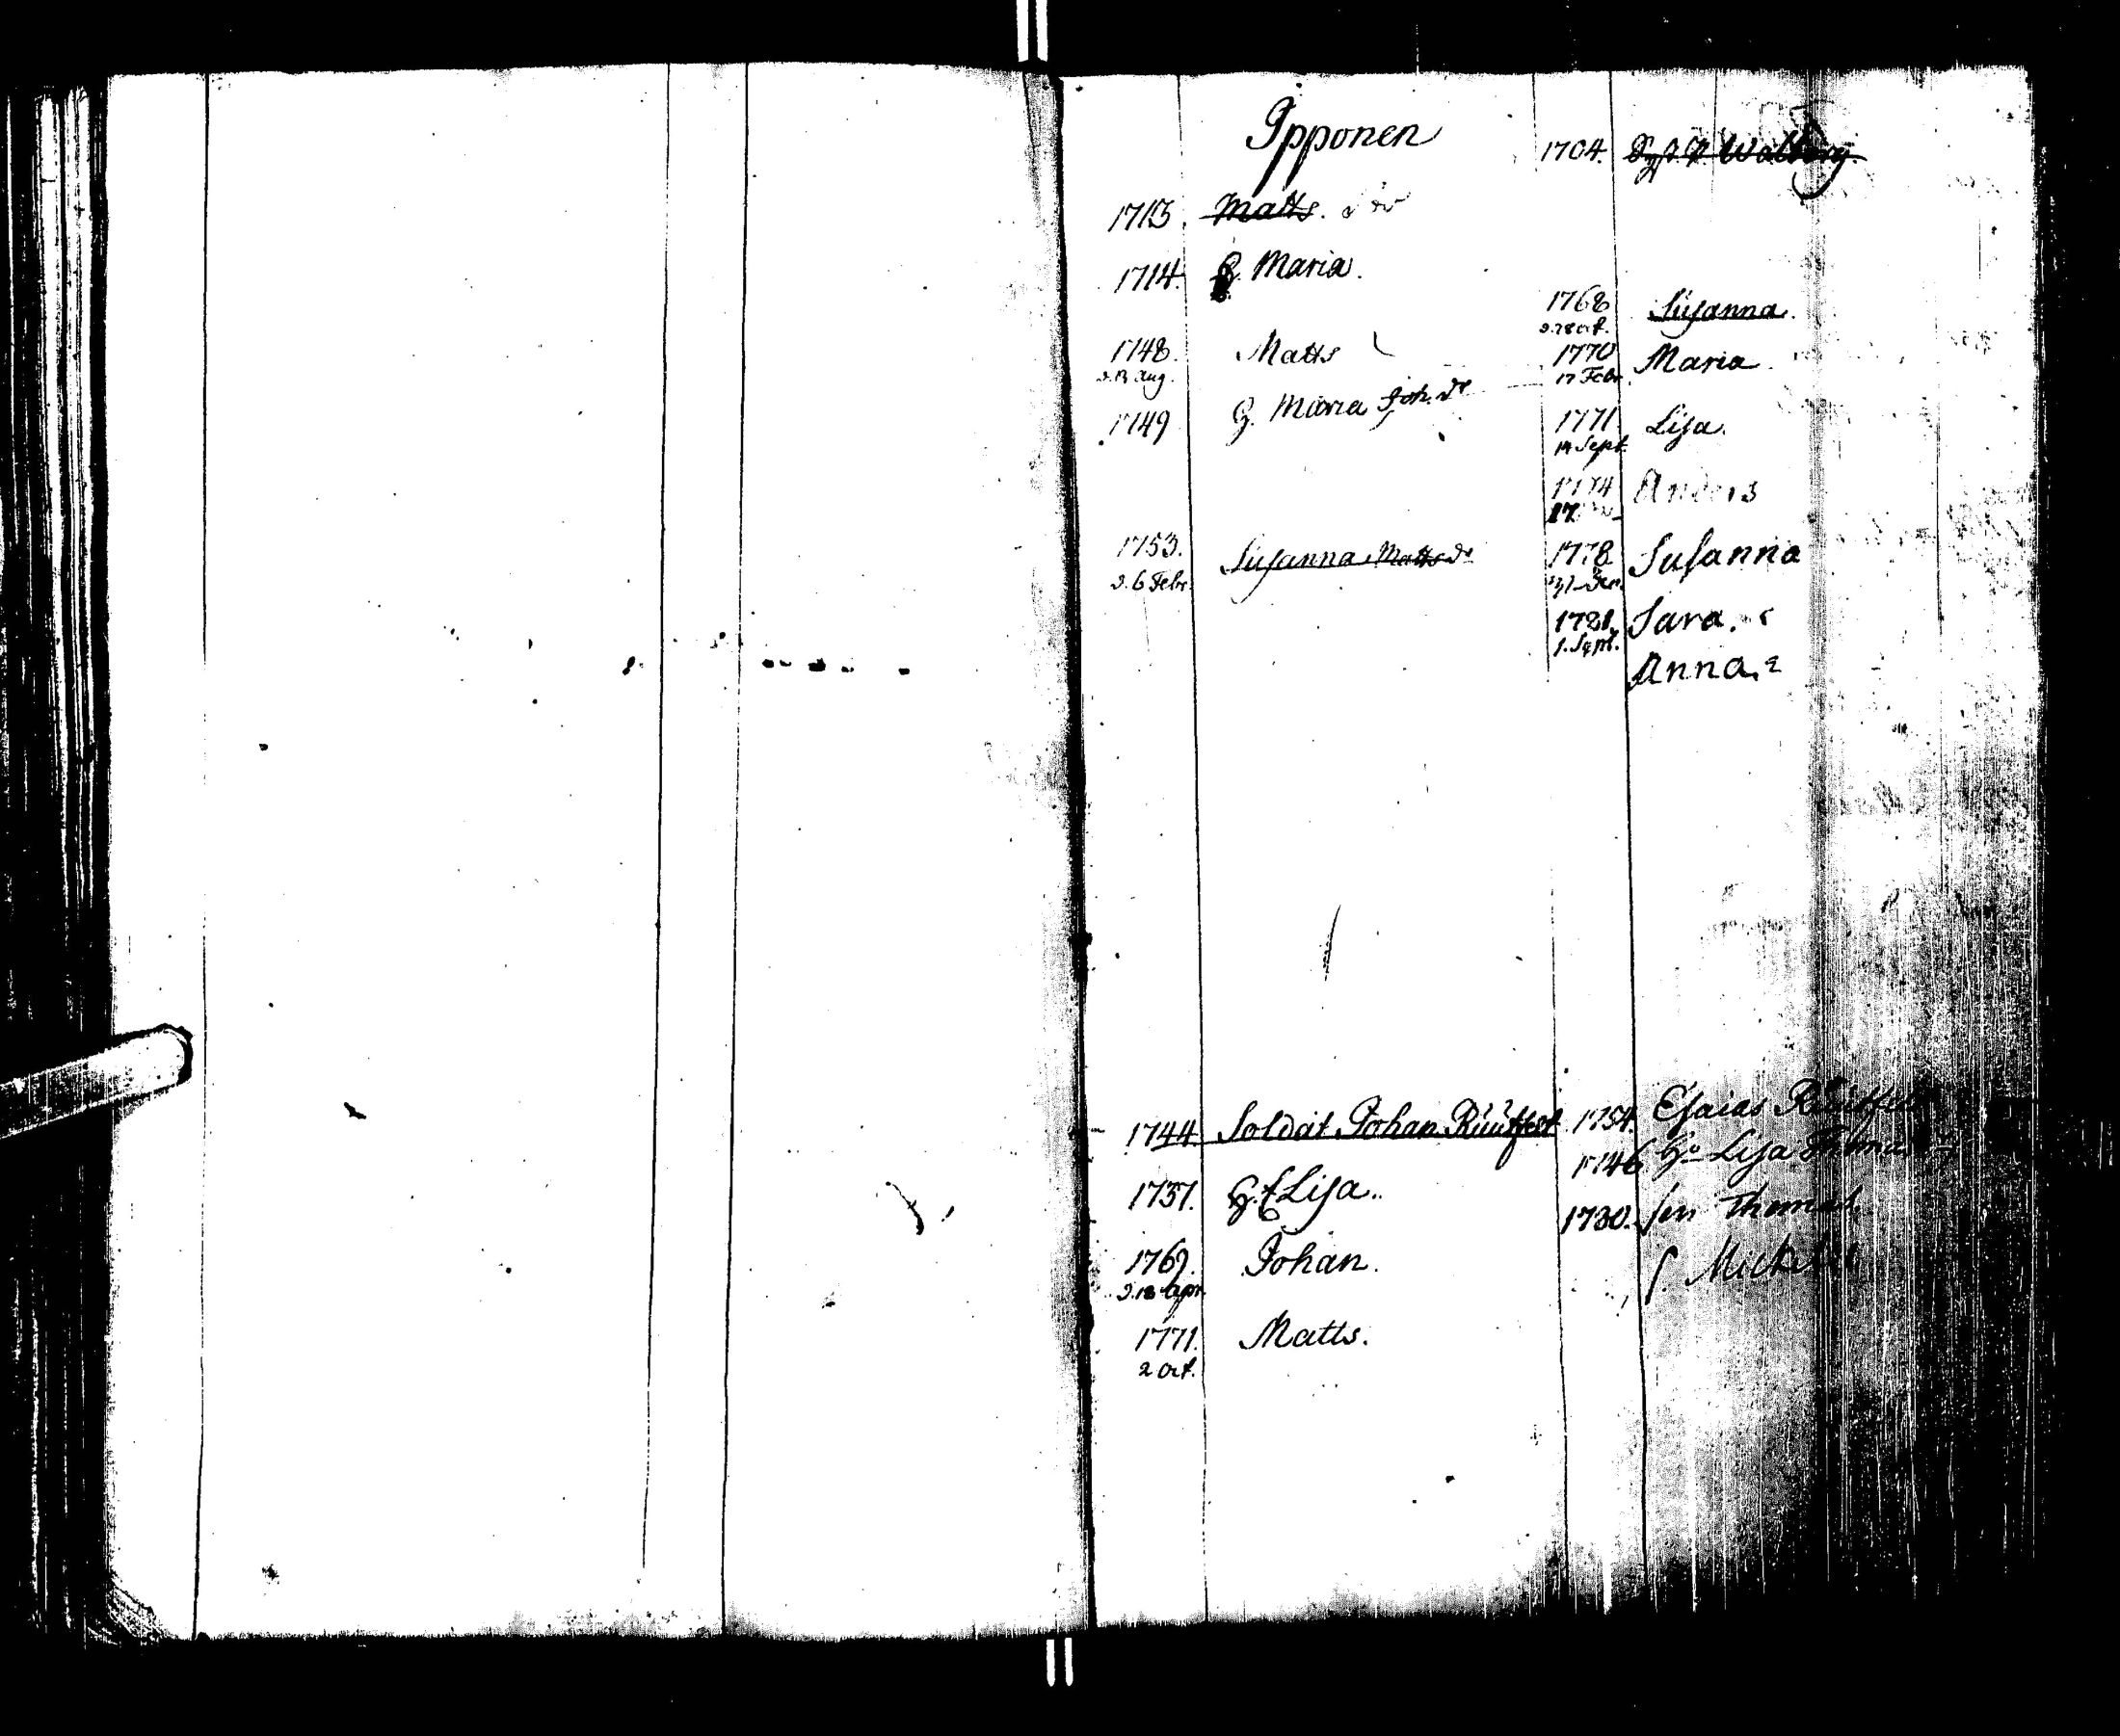 Ipponen
1713. Matts.
1714. H. Maria.
1748. Matts
d. 13 Aug.
1749 H. Maria Joh. dr
1753. Susanna Matts dr
d. 6 Febr.
1744. Soldat Johan Rüütfelt
1737. H. Lisa.
1769. Johan.
d. 18 Apr.
1771. Matts.
2 Oct.
1704. Walborg.
1768 Susanna.
d. 28 oct.
1770 Maria.
17 Febr.
1771 Lisa.
14 Sept.
1774 Anders
17
1778 Susanna
1781. Sara.
1. Sept.
Anna.
1754. Esaias
1746 Ho Lisa
1780. son Thomas
s. Mickel